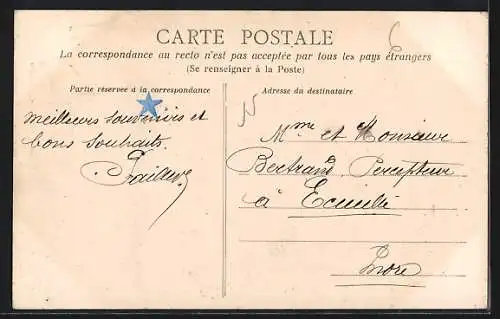 CARTE POSTALE
La correspondance au recto n'est pas acceptée par tous les pays étrangers
(Se renseigner à la Poste)
Partie réservée à la correspondance
Adresse du destinataire
Meilleurs souvenirs et
bons souhaits.
Mme et Monsieur
Bertrand Percepteur
à